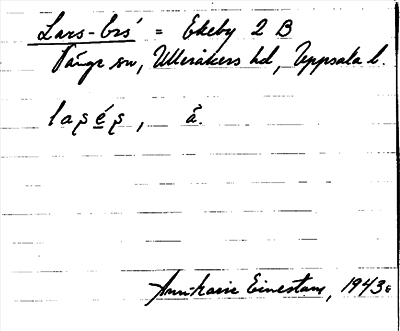 Lars-Ers' = Ekeby 2 B
Vänge sn, Ulleråkers hd, Uppsala l.
laşéş, å.
Ann-Marie Einestam, 1943.